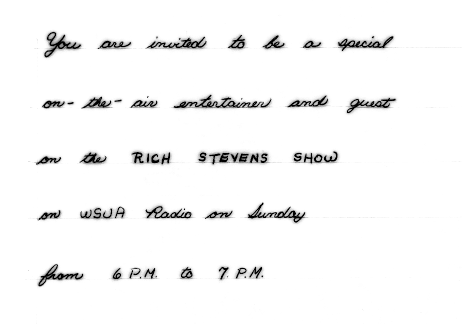 You are invited to be a special
on-the-air entertainer and guest
on the RICH STEVENS SHOW
on WSUA Radio on Sunday
from 6 P.M. to 7 P.M.